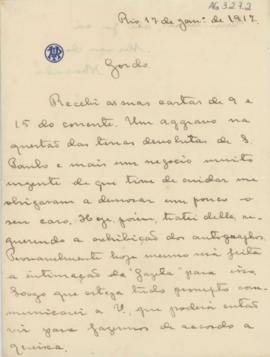 AG 3.2.7.2
Rio 17 de jan.º de 1917.
Gordo.
Recebi as suas cartas de 9 e
15 do corrente. Um aggravo na
questão das terras devolutas de S.
Paulo e mais um negocio muito
urgente de que tive de cuidar me
obrigaram a demorar um pouco o
seu caso. Hoje, porém, tratei delle, re-
querendo a exhibição dos autographos.
Provavelmente hoje mesmo será feita
a intimação da "Gazeta" para isso.
Logo que esteja tudo prompto com-
municarei a V., que poderá então
vir para fazermos de accordo a
queixa.